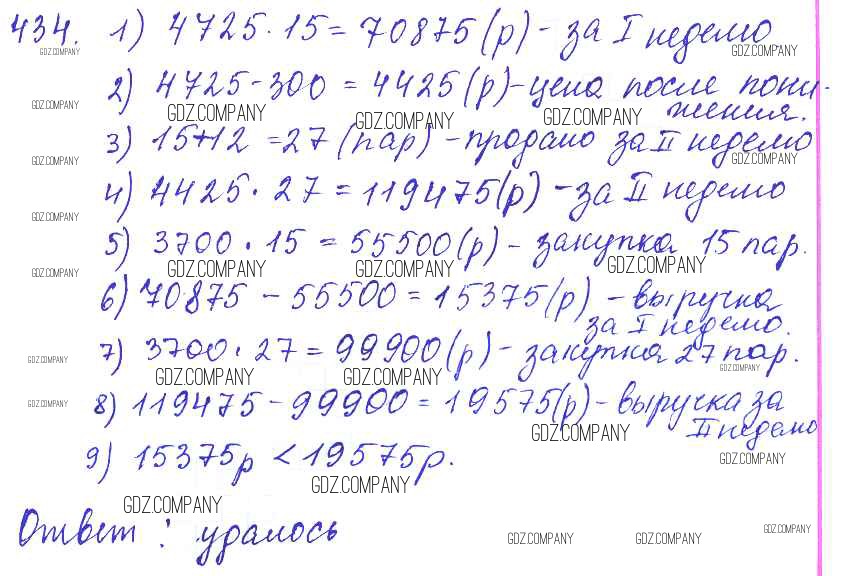 434. 1) 4725 · 15 = 70875 (р) - за I неделю
GDZ.COMPANY GDZ.COMPANY
2) 4725 - 300 = 4425 (р) - цена после пони-
GDZ.COMPANY GDZ.COMPANY GDZ.COMPANY GDZ.COMPANY жения.
3) 15 + 12 = 27 (пар) - продано за II неделю
GDZ.COMPANY GDZ.COMPANY
4) 4425 · 27 = 119475 (р) - за II неделю
GDZ.COMPANY
5) 3700 · 15 = 55500 (р) - закупка 15 пар.
GDZ.COMPANY GDZ.COMPANY GDZ.COMPANY GDZ.COMPANY
6) 70875 - 55500 = 15375 (р) - выручка
за I неделю.
7) 3700 · 27 = 99900 (р) - закупка 27 пар.
GDZ.COMPANY GDZ.COMPANY GDZ.COMPANY GDZ.COMPANY
8) 119475 - 99900 = 19575 (р) - выручка за
GDZ.COMPANY GDZ.COMPANY II неделю
9) 15375р < 19575р.
GDZ.COMPANY
GDZ.COMPANY GDZ.COMPANY
Ответ: удалось
GDZ.COMPANY GDZ.COMPANY GDZ.COMPANY